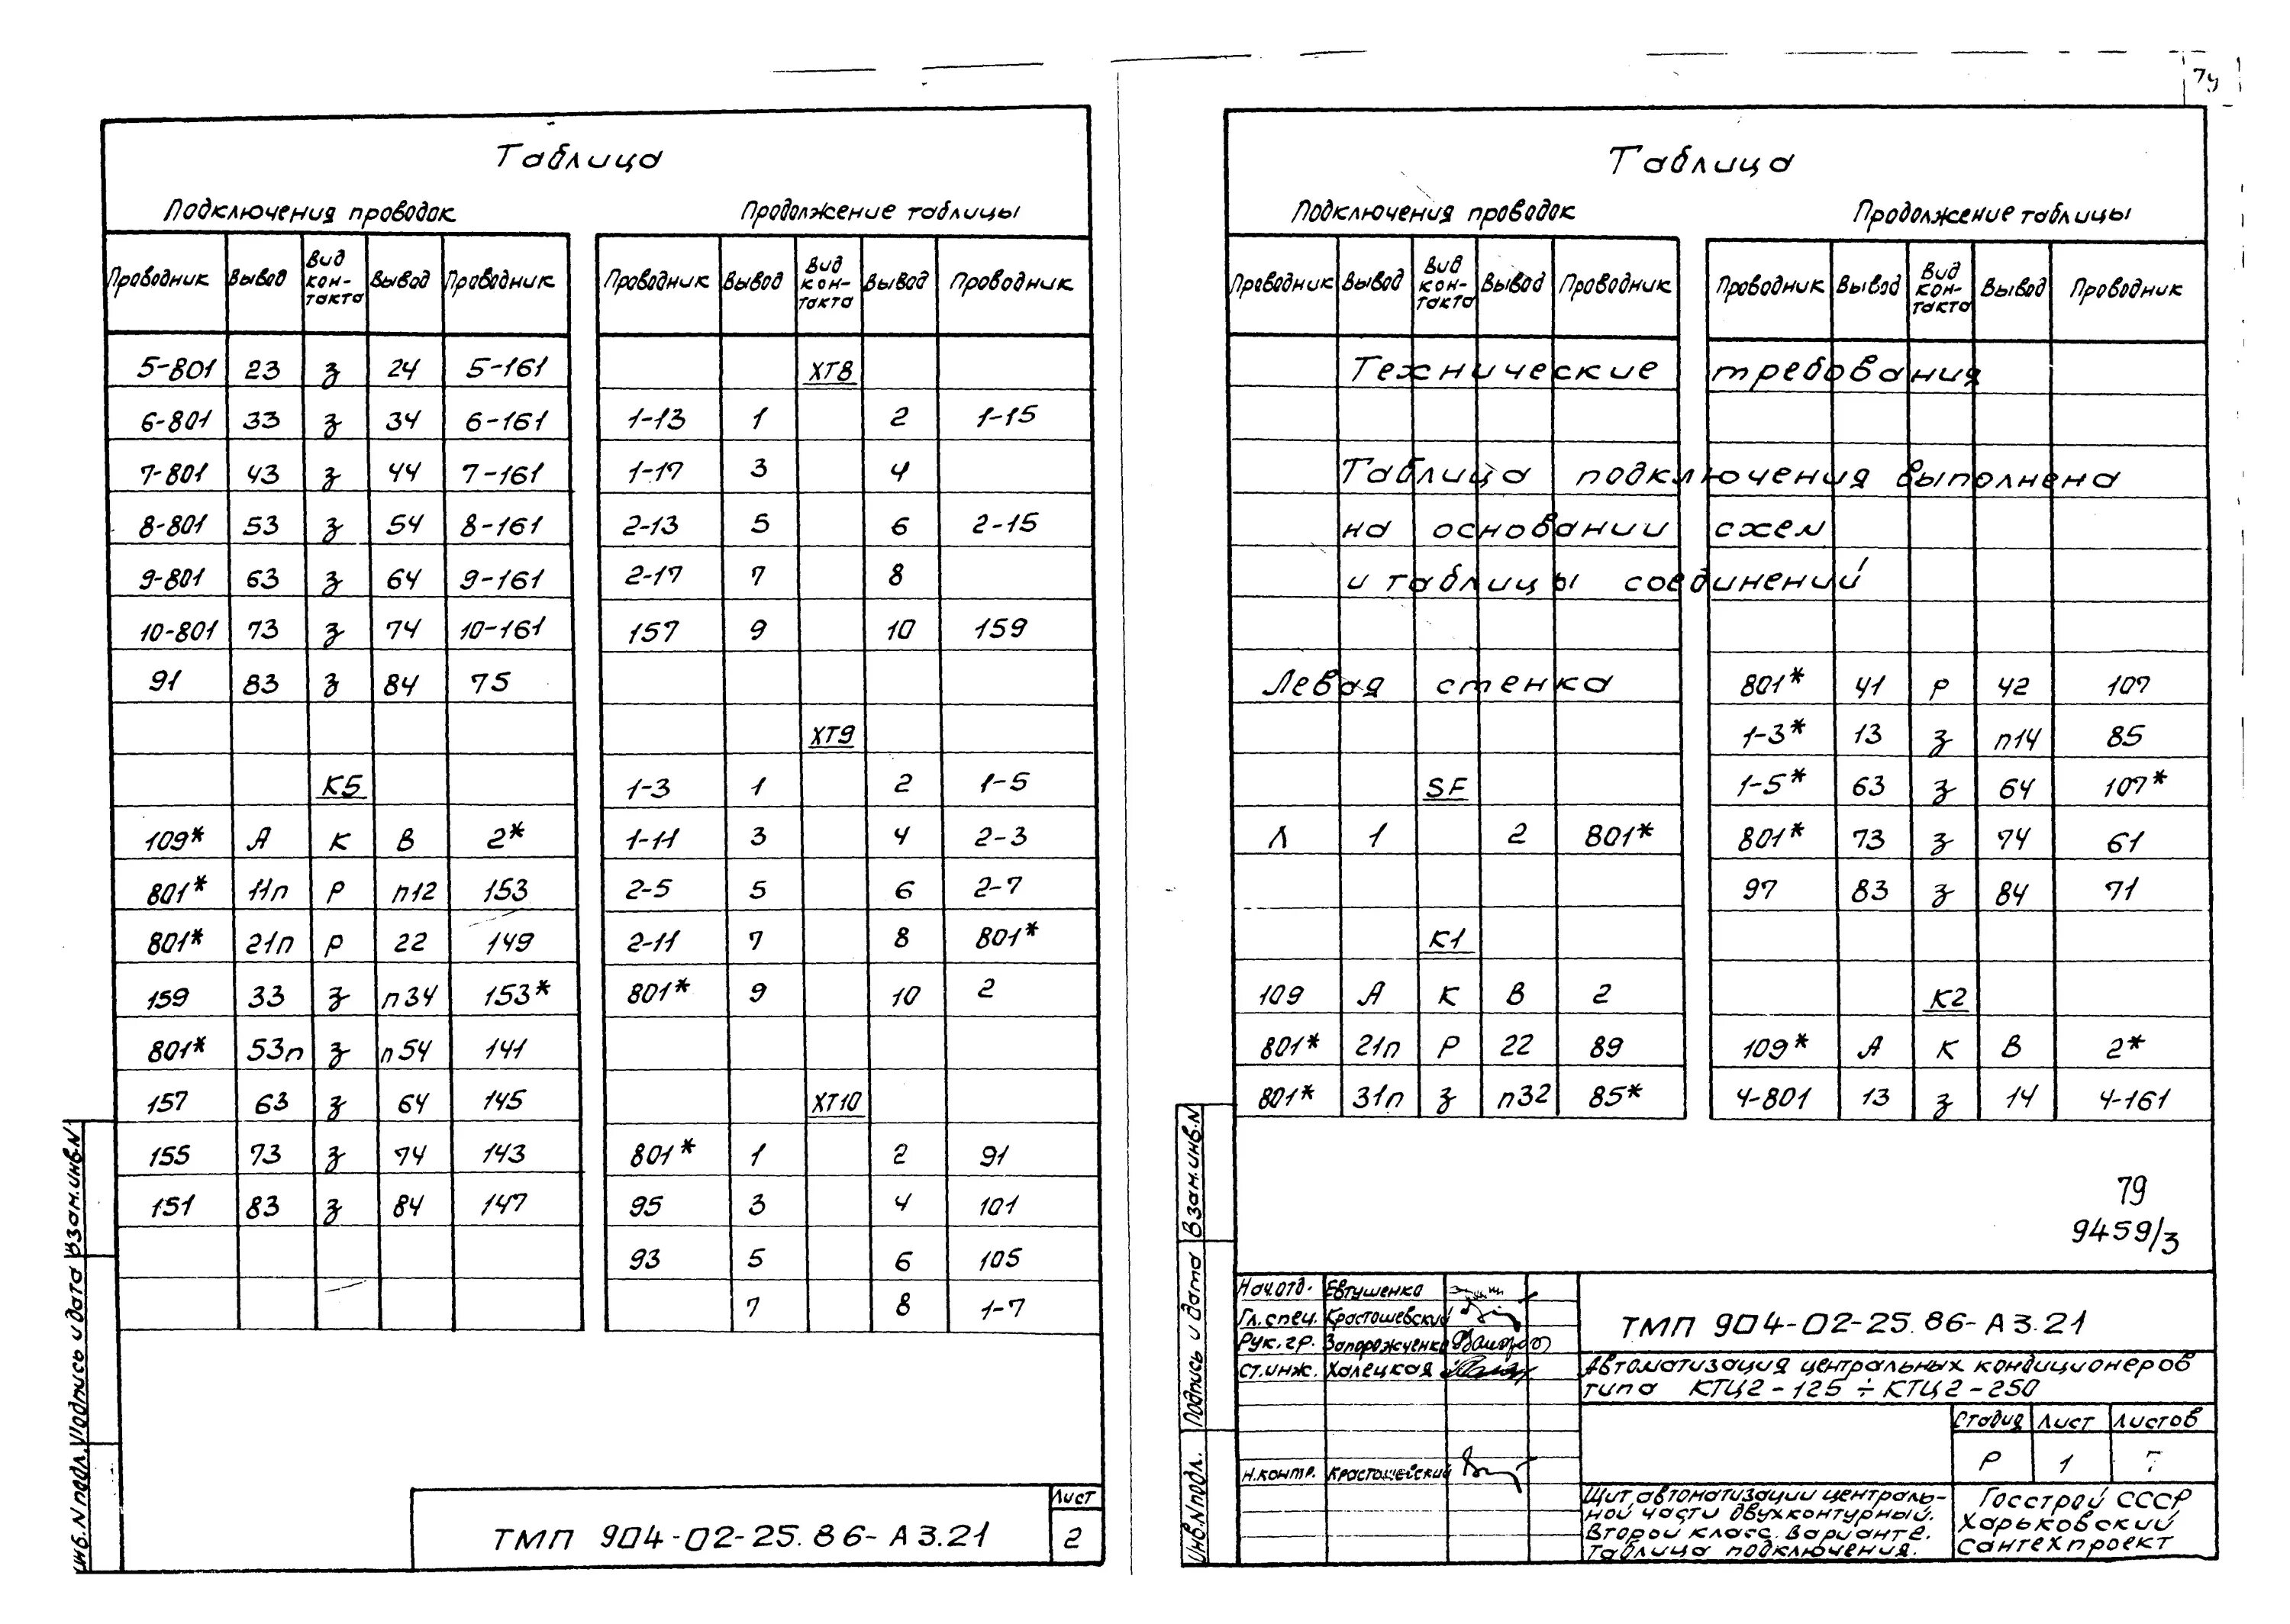 Таблица
Подключения проводок
Проводник Вывод Вид кон-такта Вывод Проводник
5-801 23 з 24 5-161
6-801 33 з 34 6-161
7-801 43 з 44 7-161
8-801 53 з 54 8-161
9-801 63 з 64 9-161
10-801 73 з 74 10-161
91 83 з 84 75
К5
109* А К В 2*
801* 11п Р п12 153
801* 21п Р 22 149
159 33 з п34 153*
801* 53п з п54 141
157 63 з 64 145
155 73 з 74 143
151 83 з 84 147
Продолжение таблицы
Проводник Вывод Вид кон-такта Вывод Проводник
ХТ8
1-13 1 2 1-15
1-17 3 4
2-13 5 6 2-15
2-17 7 8
157 9 10 159
ХТ9
1-3 1 2 1-5
1-11 3 4 2-3
2-5 5 6 2-7
2-11 7 8 801*
801* 9 10 2
ХТ10
801* 1 2 91
95 3 4 101
93 5 6 105
7 8 1-7
Взам.инв.N
Подпись и дата
Инв.N подл.
ТМП 904-02-25.86-А3.21
Лист
2
Таблица
Подключения проводок
Проводник Вывод Вид кон-такта Вывод Проводник
Продолжение таблицы
Проводник Вывод Вид кон-такта Вывод Проводник
Технические требования
Таблица подключения выполнена
на основании схем
и таблицы соединений
Левая стенка
SF
Л 1 2 801*
К1
109 А К В 2
801* 21п Р 22 89
801* 31п з п32 85*
801* 41 Р 42 107
1-3* 13 з п14 85
1-5* 63 з 64 107*
801* 73 з 74 61
97 83 з 84 71
К2
109* А К В 2*
4-801 13 з 14 4-161
79
9459/3
Взам.инв.N
Подпись и дата
Инв.N подл.
Нач.отд. Евтушенко
Гл.спец. Красташевский
Рук.гр. Запорожченко
Ст.инж. Халецкая
Н.контр. Красташевский
ТМП 904-02-25.86-А3.21
Автоматизация центральных кондиционеров
типа КТЦ2-125÷КТЦ2-250
Стадия Лист Листов
Р 1
Щит автоматизации централь-
ной части двухконтурный.
Второй класс. Варианте.
Таблица подключения.
Госстрой СССР
Харьковский
Сантехпроект